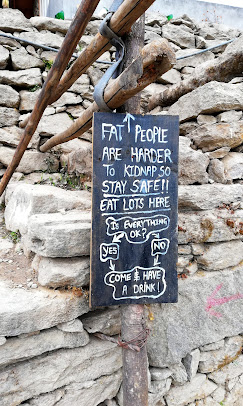 FAT PEOPLE
ARE HARDER
TO KIDNAP SO
STAY SAFE!!
EAT LOTS HERE
IS EVERYTHING
OK?
YES NO
COME & HAVE
A DRINK!